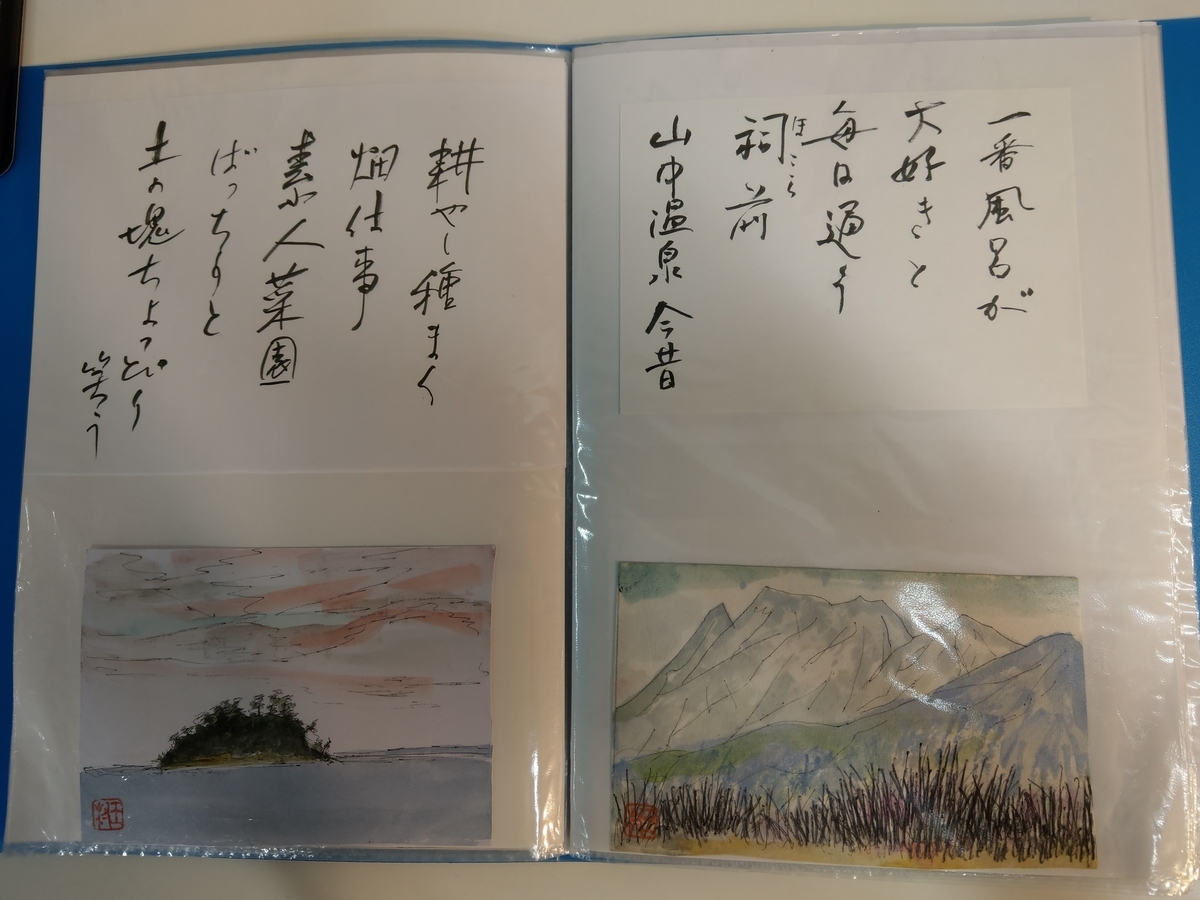 一番風呂が
大好きと
毎日通う
ほこら
祠前
山中温泉 今昔
耕やし種まく
畑仕事
素人菜園
ばっちりと
土の塊ちょっぴり
笑う